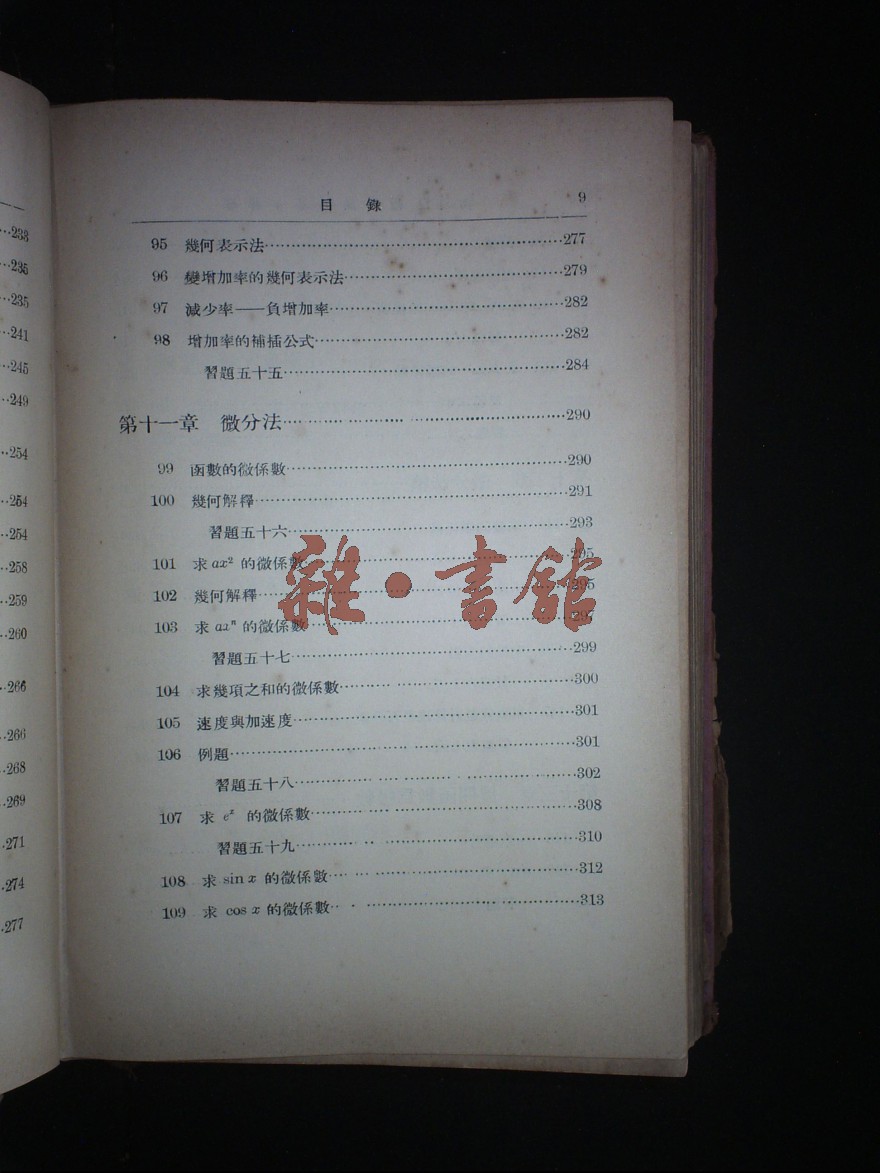 233
235
235
241
245
249
254
264
254
258
259
260
266
266
268
269
271
274
277
目 錄 9
95 幾何表示法 277
96 變增加率的幾何表示法 279
97 減少率——負增加率 282
98 增加率的補插公式 282
習題五十五 284
第十一章 微分法 290
99 函數的微係數 290
100 幾何解釋 291
習題五十六 293
101 求 ax² 的微係數 295
102 幾何解釋 295
103 求 axⁿ 的微係數 297
習題五十七 299
104 求幾項之和的微係數 300
105 速度與加速度 301
106 例題 301
習題五十八 302
107 求 eˣ 的微係數 308
習題五十九 310
108 求 sin x 的微係數 312
109 求 cos x 的微係數 313
雜·書館